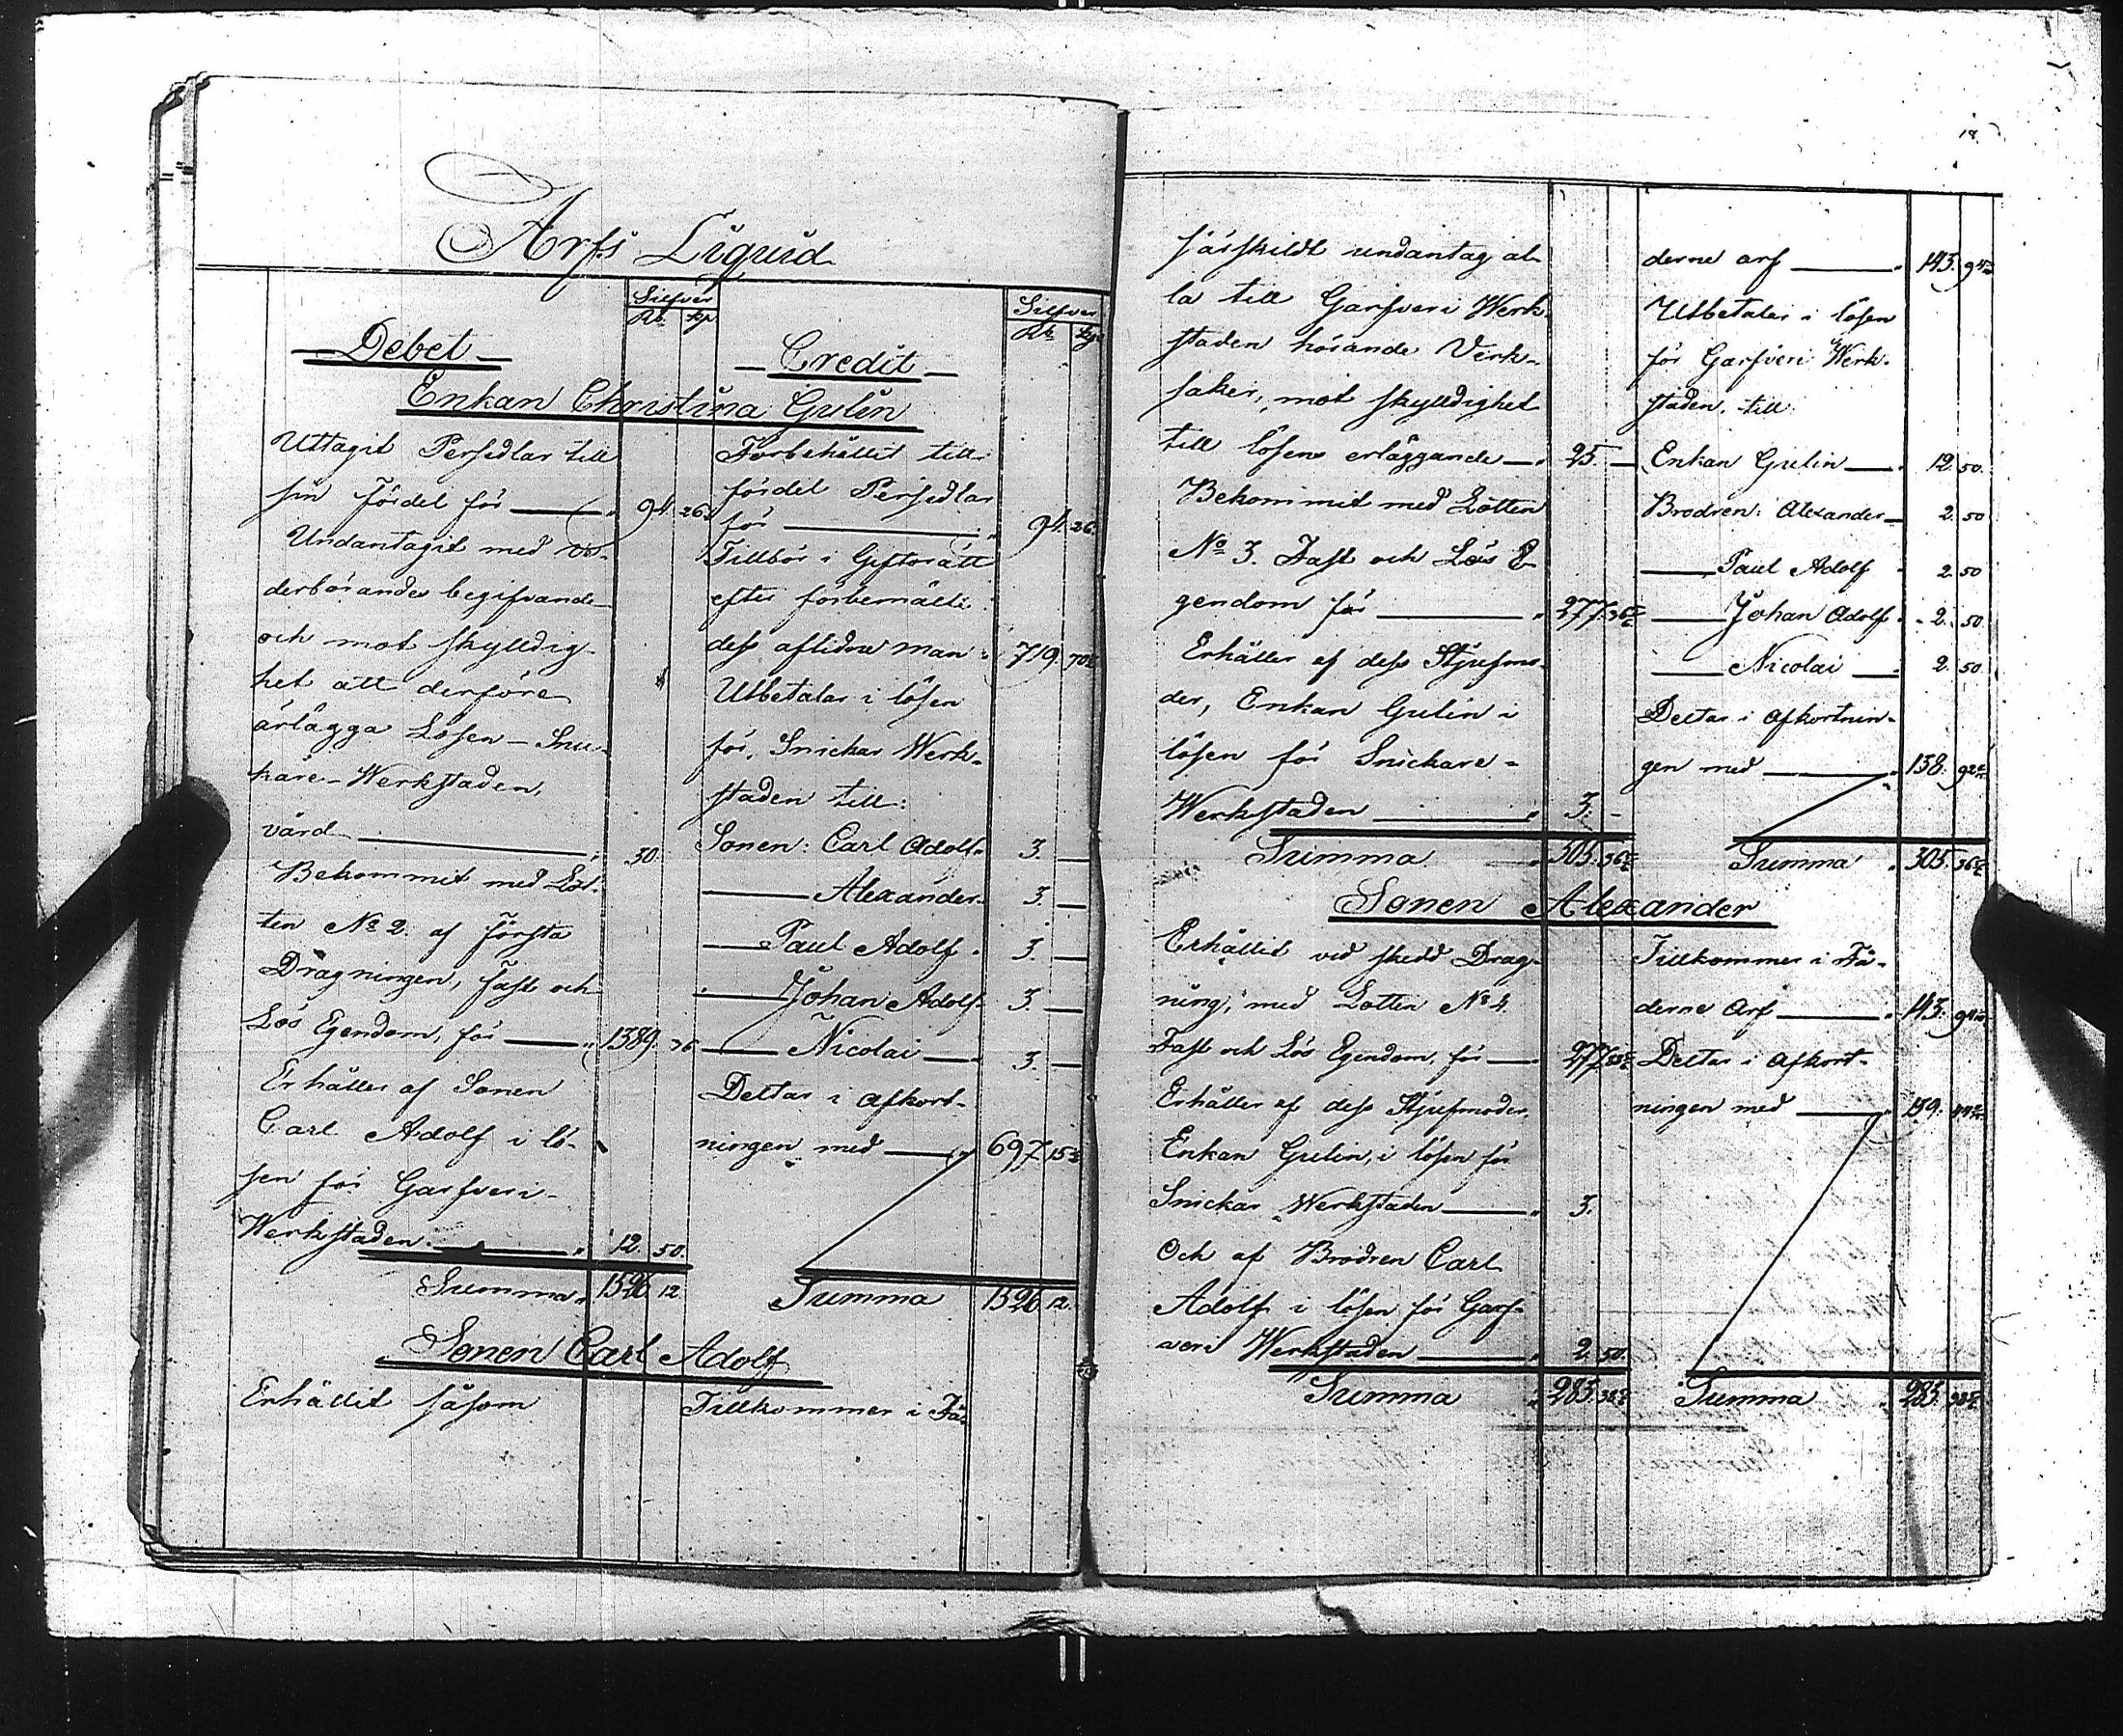 18
Arfs Liquid
Silfver
Rb. kp
Silfver
Rb kp
Debet
Credit
Enkan Christina Gulin
Uttagit Persedlar till
sin fördel för 94. 26.
Undantagit med
derbörandes begifvande
och mot skylldig-
het att derföre
ärlägga Lösen – Snic-
kare-Werkstaden,
värd 30.
Bekommit med Lot-
ten No 2. af första
Dragningen, fast och
Lös Egendom, för 1389. 36
Erhåller af Sonen
Carl Adolf i lö-
sen för Garfveri-
Werkstaden 12. 50.
Summa 1526 12
Förbehållit till
fördel Persedlar
för 94. 26.
Tillhör i Giftorätt
efter förbemälte
dess aflidne man 719. 70
Utbetalar i lösen
för Snickar Werk-
staden till:
Sonen: Carl Adolf 3. —
Alexander 3. —
Paul Adolf 3. —
Johan Adolf 3. —
Nicolai 3. —
Deltar i afkort-
ningen med 697. 15
Summa 1526 12.
Sonen Carl Adolf
Erhållit såsom
Tillkommer i Fä-
särskildt undantag al-
la till Garfveri Werk-
staden hörande Verk-
saker, mot skylldighet
till lösens erläggande 25. —
Bekommit med Lotten
No 3. Fast och Lös E-
gendom för 277. 36
Erhåller af dess Stjufmo-
der, Enkan Gulin i
lösen för Snickare-
Werkstaden 3. -
Summa 305. 36
derne arf 143. 94
Utbetaler i lösen
för Garfveri Werk-
staden, till
Enkan Gulin 12. 50.
Brodren: Alexander 2. 50
Paul Adolf 2. 50
Johan Adolf 2. 50
Nicolai 2. 50.
Deltar i afkortnin-
gen med 138. 92
Summa 305. 36
Sonen Alexander
Erhållit vid skedd Drag-
ning, med Lotten No 4.
Fast och Lös Egendom, för 277.
Erhåller af dess Stjufmoder
Enkan Gulin, i lösen för
Snickar Werkstaden 3.
Och af Brodren Carl
Adolf i lösen för Garf-
veri Werkstaden 2. 50.
Summa 283.
Tillkommer i Fä-
derne Arf 143. 94
Deltar i afkort-
ningen med 139.
Summa 283.